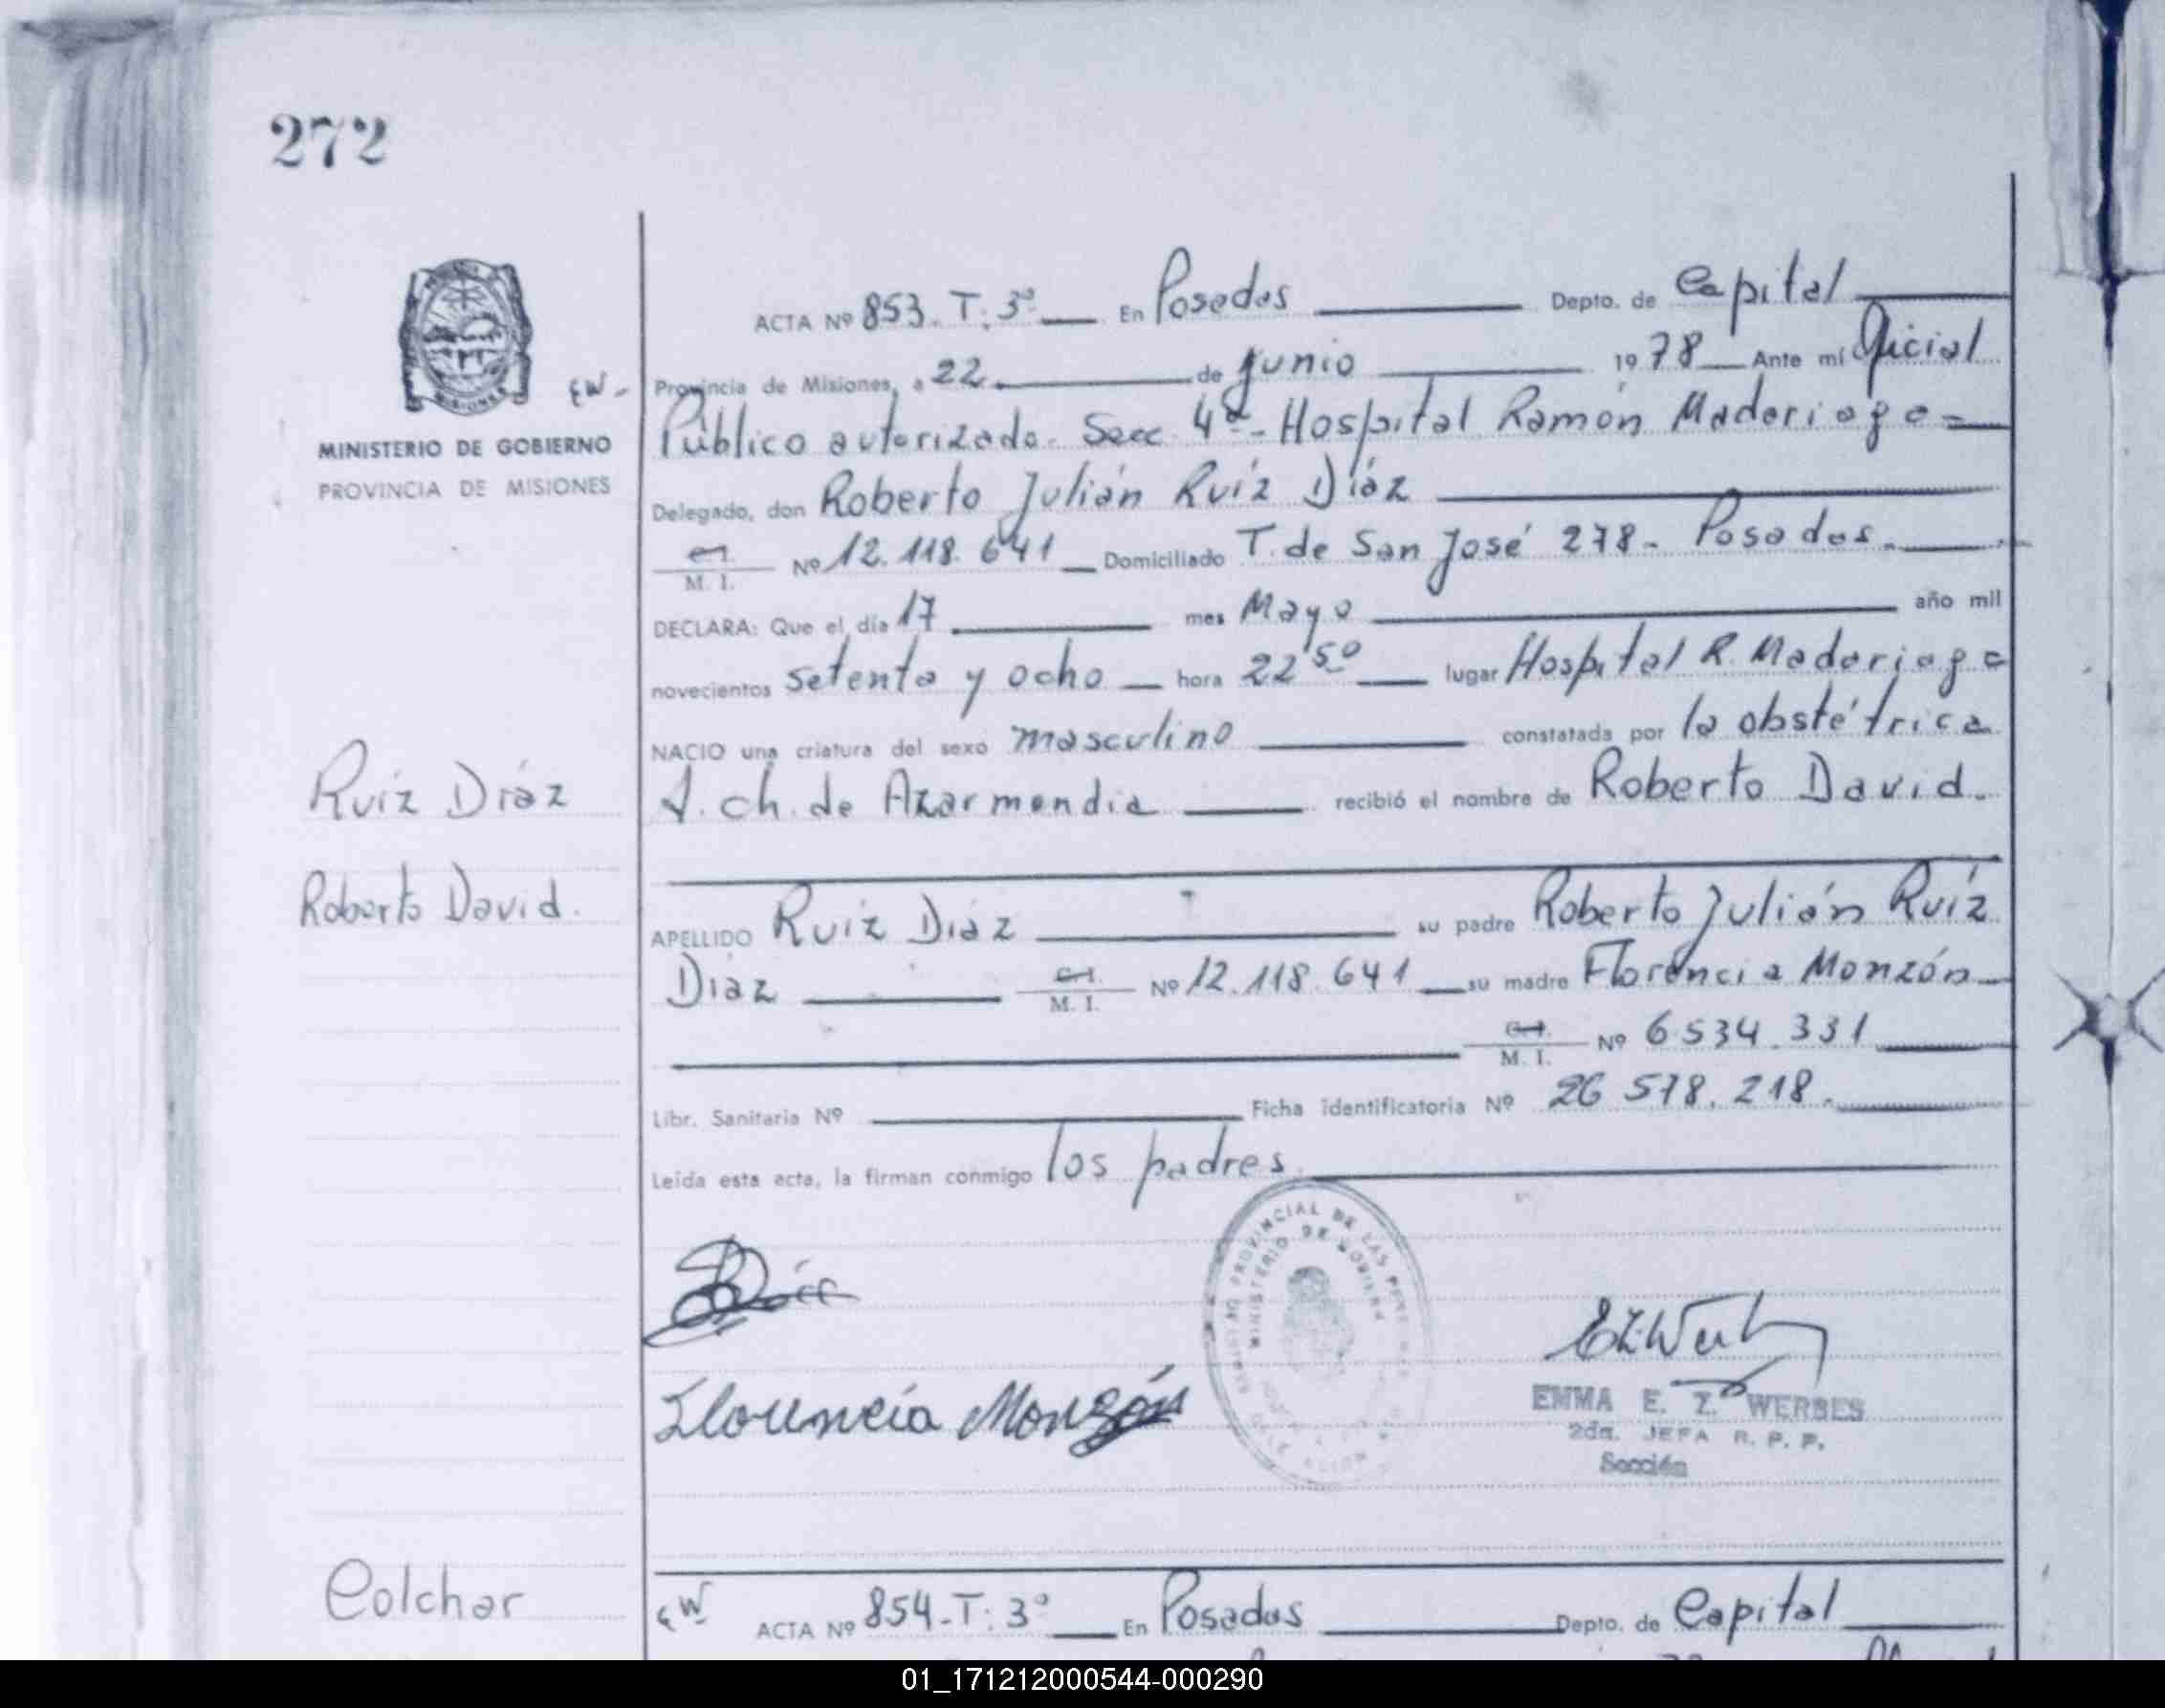 272
MINISTERIO DE GOBIERNO
PROVINCIA DE MISIONES
EW-
ACTA Nº 853. T: 3º En Posadas Depto. de Capital
Provincia de Misiones, a 22 de Junio 1978 Ante mí Oficial
Público autorizado. Secc. 4ª - Hospital Ramón Madariaga
Delegado, don Roberto Julián Ruíz Díaz
C.I. M. I. Nº 12.118.641 Domiciliado T. de San José 278 - Posadas.
DECLARA: Que el día 17 mes Mayo año mil
novecientos setenta y ocho hora 22 50 lugar Hospital R. Madariaga
NACIO una criatura del sexo masculino constatada por la obstétrica
Ruiz Díaz
J. ch. de Azarmendia recibió el nombre de Roberto David.
Roberto David.
APELLIDO Ruiz Diaz su padre Roberto Julián Ruíz
Diaz C.I. M. I. Nº 12.118.641 su madre Florencia Monzón
C.I. M. I. Nº 6534.331
Libr. Sanitaria Nº Ficha identificatoria Nº 26 578.218.
Leída esta acta, la firman conmigo los padres
PROVINCIAL DE LAS
MINISTERIO DE GOBIERNO
Florencia Monzón
EMMA E. Z. WERBES
2da. JEFA R. P. P.
Sección
Colchar
EW
ACTA Nº 854-T: 3º En Posadas Depto. de Capital
01_171212000544-000290